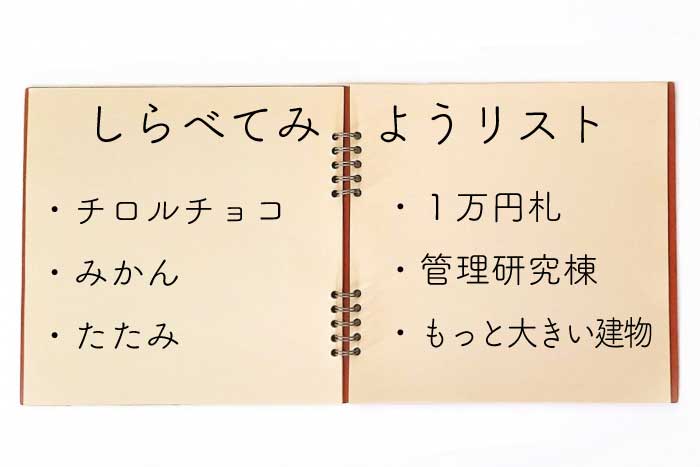 しらべてみようリスト
・チロルチョコ
・みかん
・たたみ
・１万円札
・管理研究棟
・もっと大きい建物